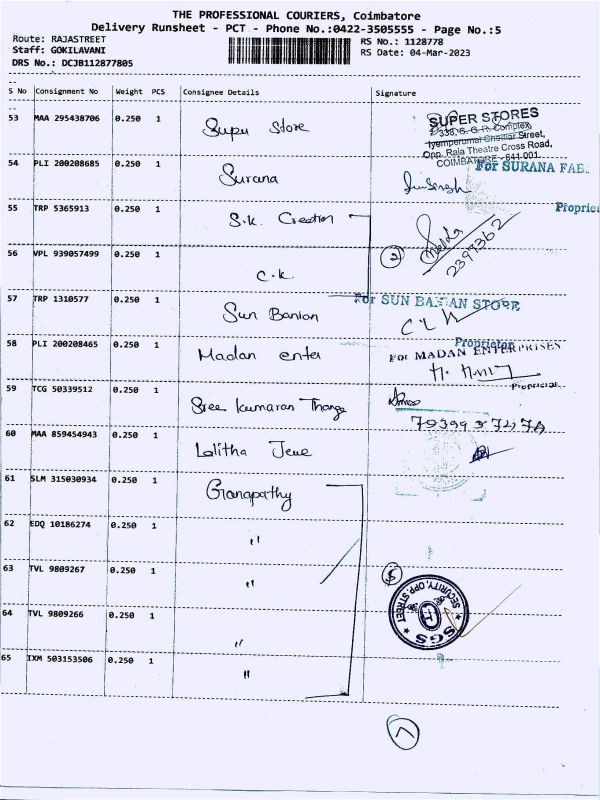 THE PROFESSIONAL COURIERS, Coimbatore
Delivery Runsheet - PCT - Phone No.:0422-3505555 - Page No.:5
Route: RAJASTREET
RS No.: 1128778
Staff: GOKILAVANI
RS Date: 04-Mar-2023
DRS No.: DCJB112877805
S No Consignment No Weight PCS Consignee Details Signature
53 MAA 295438706 0.250 1 Supu Store
SUPER STORES
338, S. G. P. Complex,
Iyemperumal Chettiar Street,
Opp. Raja Theatre Cross Road,
COIMBATORE - 641 001.
54 PLI 200208685 0.250 1 Surana
For SURANA FAB
Proprie
55 TRP 5365913 0.250 1 S.K. Creation
2
2397362
56 VPL 939057499 0.250 1 C.K.
57 TRP 1310577 0.250 1 Sun Banion
For SUN BANIAN STORE
Proprietor
58 PLI 200208465 0.250 1 Madan enter
For MADAN ENTERPRISES
Proprietor
59 TCG 50339512 0.250 1 Sree Kumaran Thanga
60 MAA 859454943 0.250 1 Lalitha Jewe
61 SLM 315030934 0.250 1 Ganapathy
62 EDQ 10186274 0.250 1 "
63 TVL 9809267 0.250 1 "
5
SECURITY, OPP. STREET
SGS
64 TVL 9809266 0.250 1 "
65 IXM 503153506 0.250 1 "